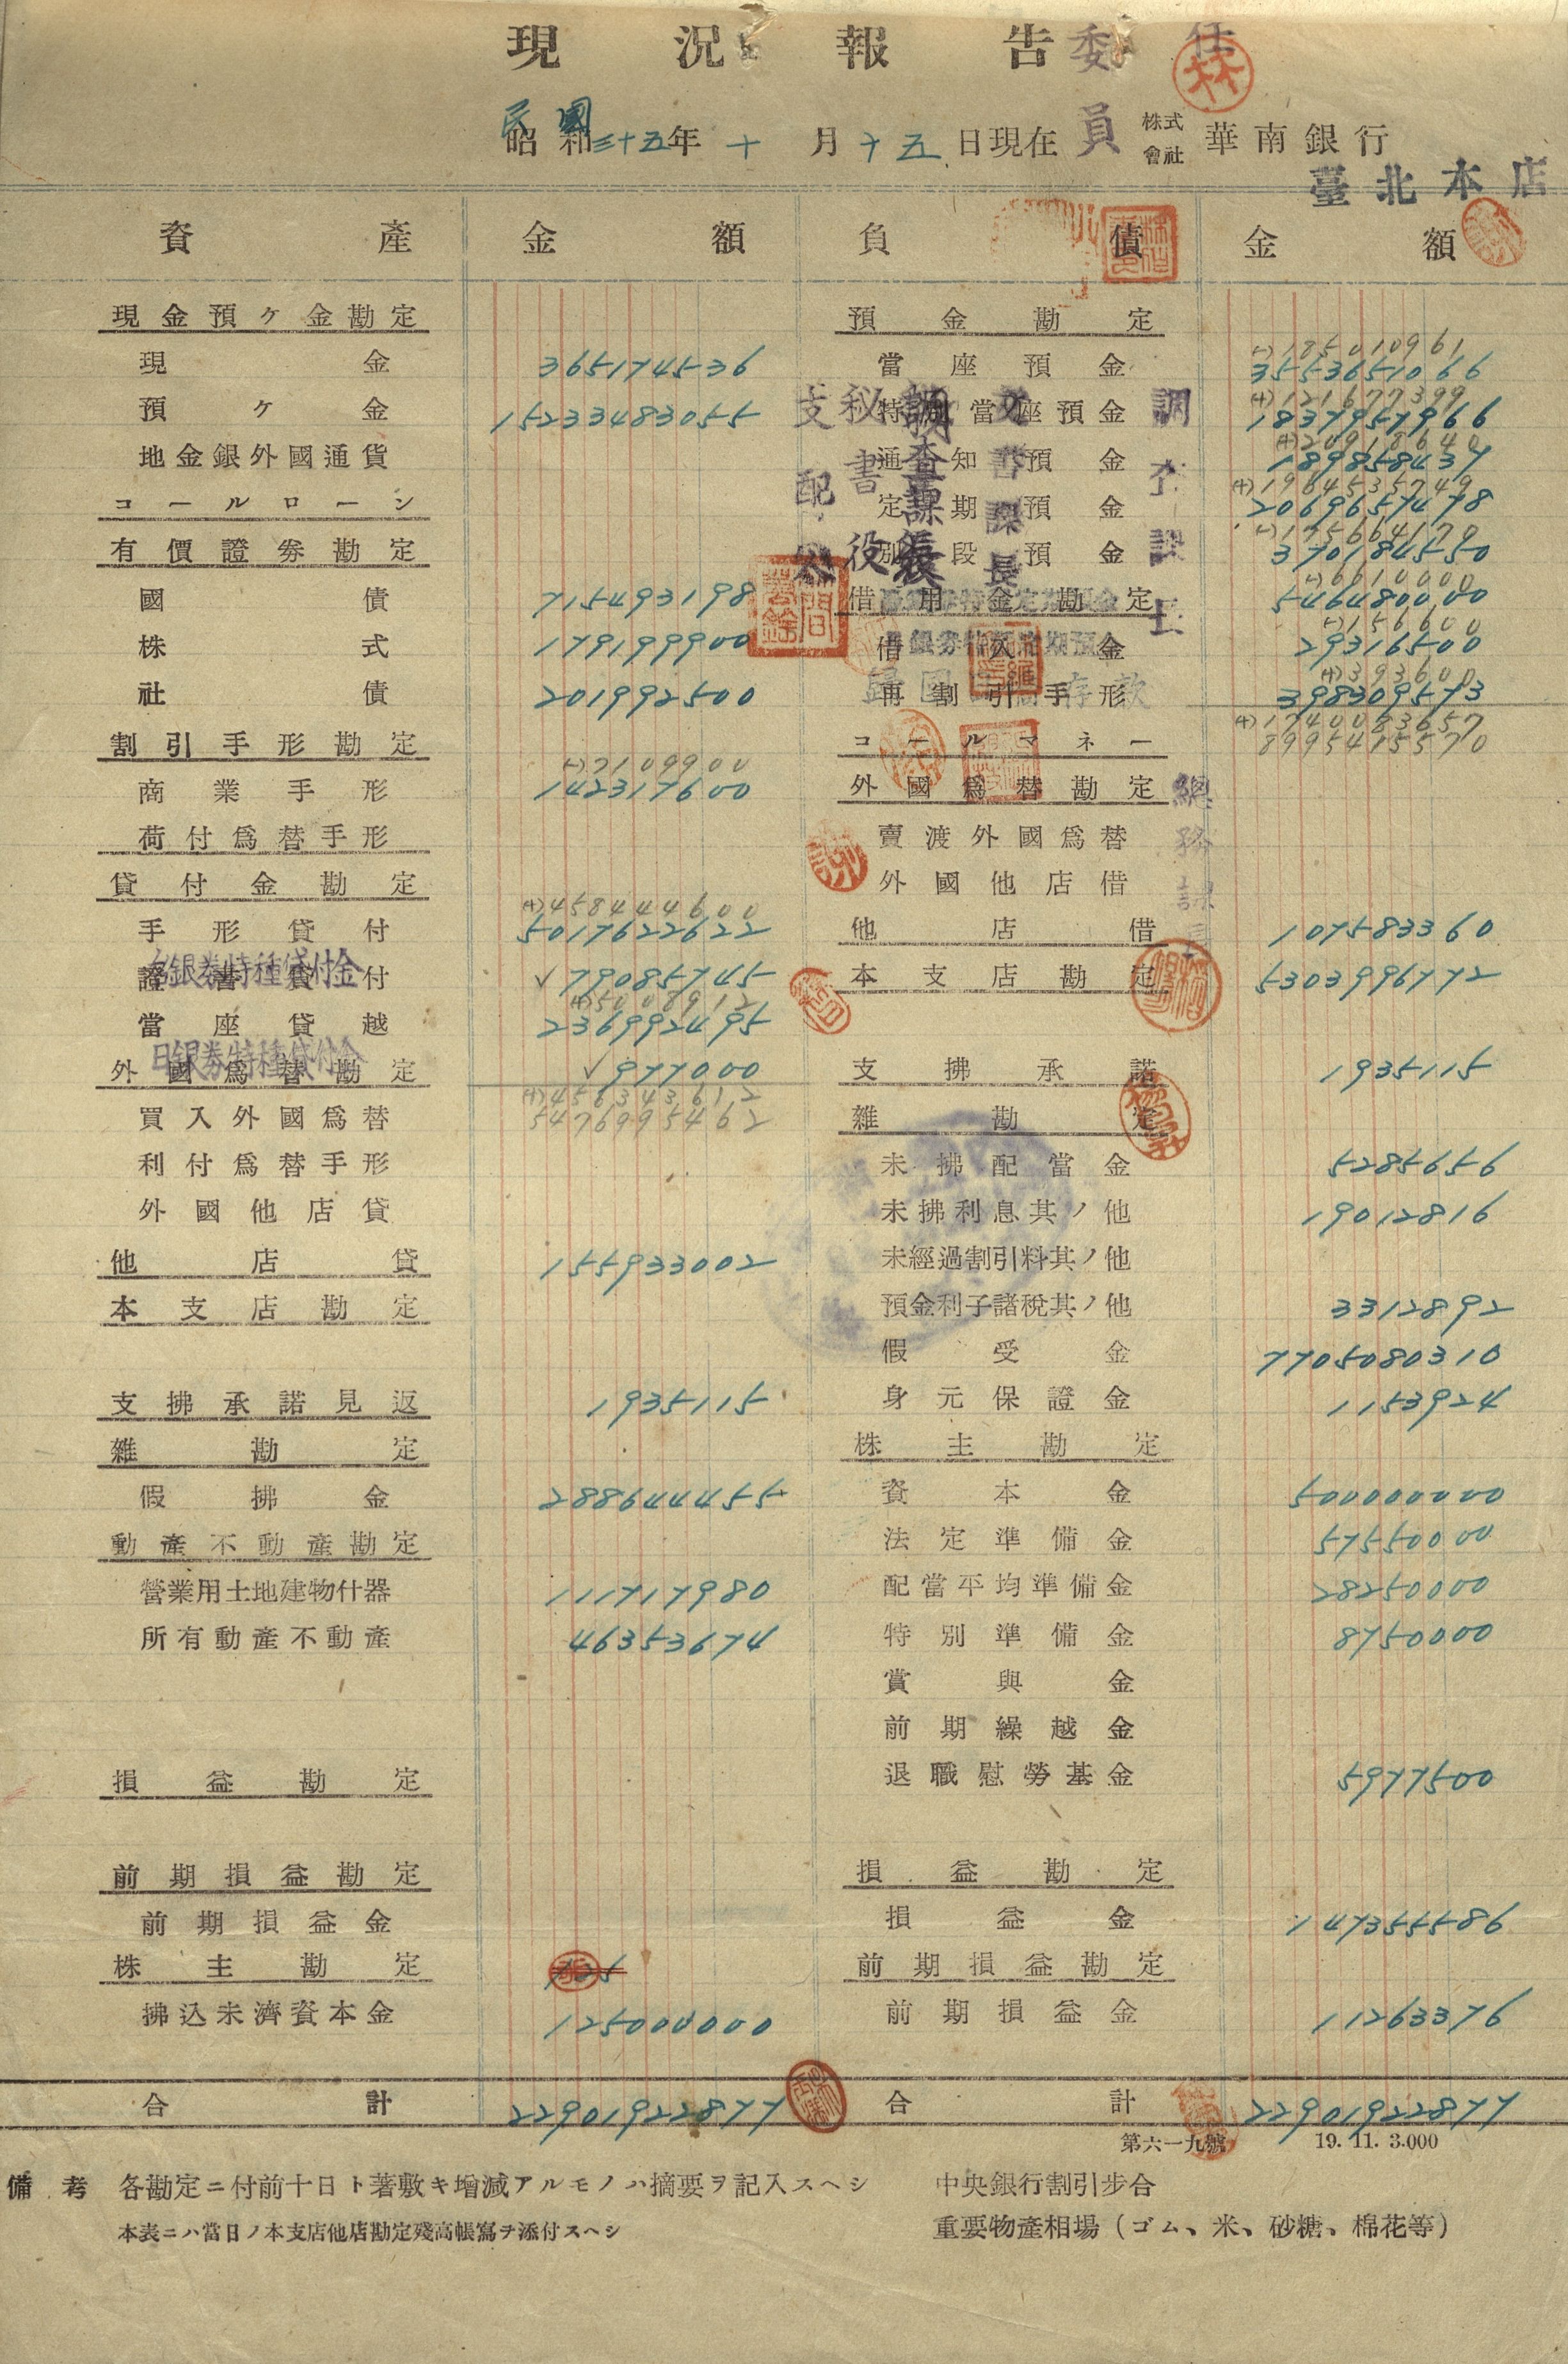 現況報告
委任
林
民國
昭和三十五年十月十五日現在 員 株式會社 華南銀行
臺北本店
資產 金額 負債 金額
現金預ケ金勘定 預金勘定
(-)185010961
現金 365174536 當座預金 3553651066
(+)121677399
預ケ金 15233483055 特別當座預金 1837957966
(+)20918640
地金銀外國通貨 通知預金 189858437
(+)1964535749
コールローン 定期預金 2069657478
(-)175664170
有價證券勘定 別段預金 370184550
(-)6610000
國債 715493198 借用金勘定 546480000
(-)156600
株式 179199900 借入金 29316500
(+)393600
社債 201992500 再割引手形 398309573
(+)1740083657
8995415570
割引手形勘定 コールマネー
(-)7109900
商業手形 142317600 外國爲替勘定
荷付爲替手形 賣渡外國爲替
貸付金勘定 外國他店借
(+)458444600
手形貸付 5017622622 他店借 107583360
台銀券特種貸付金
證書貸付 ✓79085745 本支店勘定 5303996772
(+)5008912
當座貸越 236992495
日銀券特種貸付金
外國爲替勘定 ✓977000 支拂承諾 1935115
(+)456343612
5476995462
買入外國爲替 雜勘定
利付爲替手形 未拂配當金 5285656
外國他店貸 未拂利息其ノ他 19012816
他店貸 155933002 未經過割引料其ノ他
本支店勘定 預金利子諸稅其ノ他 3312892
假受金 7705080310
支拂承諾見返 1935115 身元保證金 1153924
雜勘定 株主勘定
假拂金 288644455 資本金 500000000
動產不動產勘定 法定準備金 57550000
營業用土地建物什器 111717980 配當平均準備金 28250000
所有動產不動產 46353674 特別準備金 8750000
賞與金
前期繰越金
損益勘定 退職慰勞基金 5977500
前期損益勘定 損益勘定
前期損益金 損益金 147355586
株主勘定 前期損益勘定
拂込未濟資本金 125000000 前期損益金 11263376
合計 22901922877 合計 22901922877
第六一九號 19. 11. 3.000
備考 各勘定ニ付前十日ト著敷キ增減アルモノハ摘要ヲ記入スヘシ 中央銀行割引步合
本表ニハ當日ノ本支店他店勘定殘高帳寫ヲ添付スヘシ 重要物產相場（ゴム、米、砂糖、棉花等）
支配人
秘書役
調查課長
文書課長
調查課長
總務課長